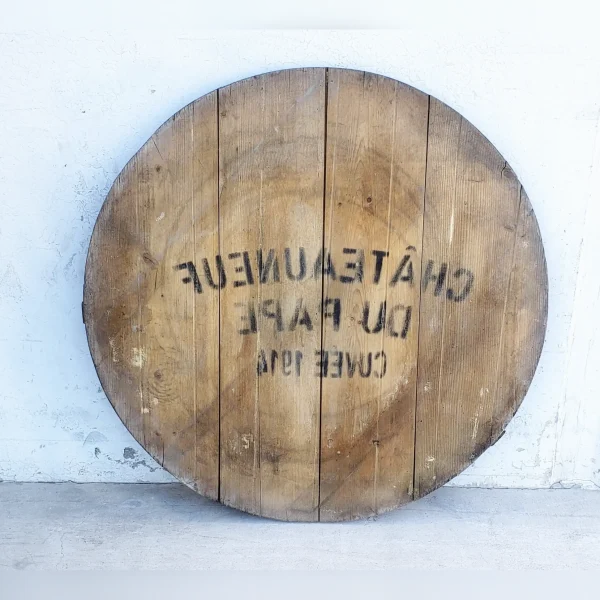 CHÂTEAUNEUF
DU PAPE
CUVÉE 1914